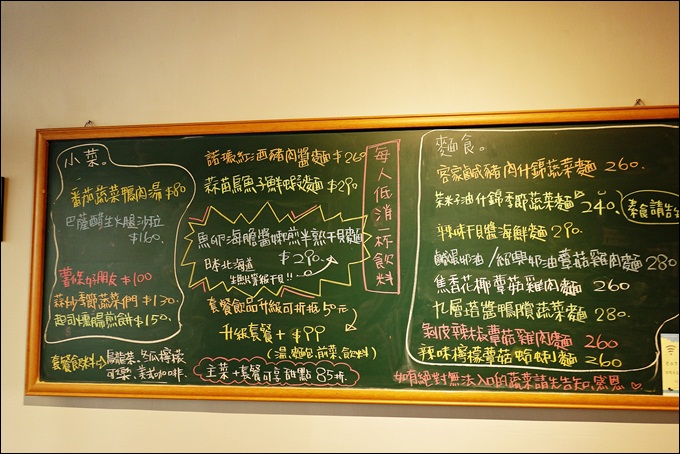 小菜。
番茄蔬菜鴨肉湯 $80
巴薩醋生火腿沙拉
$160.
薯條好朋友 $100
蒜炒季節蔬菜們 $130.
起司燻腸煎餅 $150.
套餐飲料⇨ 烏龍茶、冬瓜檸檬
可樂、美式咖啡.
諾瓦紅酒豬肉醬麵 $260
蒜苗烏魚子鮮蝦麵 $290
馬卵海膽醬
半熟干貝麵
$290.
日本北海道
生食等級干貝!!
套餐飲品升級可折抵50元
升級套餐 + $99
(湯、麵包、前菜、飲料)
主菜+套餐可享甜點85折.
每人低消一杯飲料
麵食。
客家鹹豬肉什錦蔬菜麵 260.
蒜子油什錦季節蔬菜麵 240.
素食請告
辣味XO醬海鮮麵 290.
奶油/ 奶油蘑菇雞肉麵 280
焦香花椰蘑菇雞肉麵 260
九層塔醬鴨胸蔬菜麵 280.
剝皮辣椒蘑菇雞肉麵 260
辣味檸檬蘑菇蛤蜊麵 260
如有絕對無法入口的蔬菜請先告知,感恩 ♡